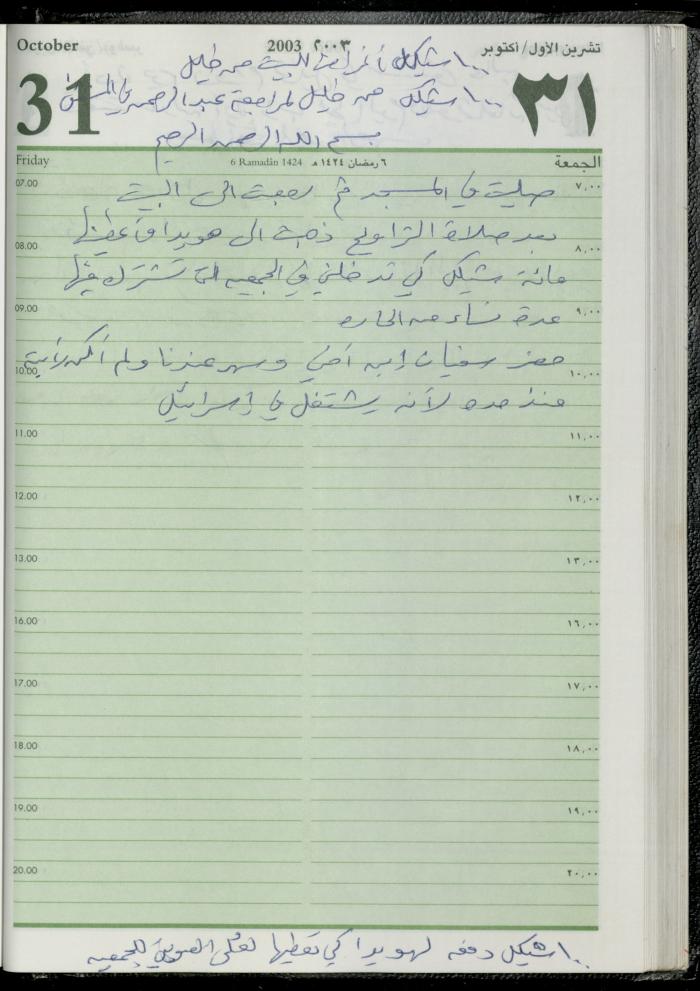 October 2003 ٢٠٠٣ تشرين الأول/أكتوبر
١٠٠ شيكل أغراض للبيت من خليل
31 ٣١
١٠٠ شيكل من خليل لمراجعة عبد الرحمن في
بسم الله الرحمن الرحيم
Friday 6 Ramadân 1424 ٦ رمضان ١٤٢٤ هـ الجمعة
07.00 ٧,٠٠
صليت في المسجد ثم رجعت الى البيت
بعد صلاة التراويح ذهبت الى هويدا فأعطيتها
08.00 ٨,٠٠
مائة شيكل كي تدخلني في الجمعيه التي تشترك فيها
09.00 ٩,٠٠
عدة نساء من الحاره
حضر سفيان إبن أختي وسهر عندنا ولم أكن رأيته
10.00 ١٠,٠٠
منذ مده لأنه يشتغل في إسرائيل
11.00 ١١,٠٠
12.00 ١٢,٠٠
13.00 ١٣,٠٠
16.00 ١٦,٠٠
17.00 ١٧,٠٠
18.00 ١٨,٠٠
19.00 ١٩,٠٠
20.00 ٢٠,٠٠
١٠٠ شيكل دفعه لهويدا كي تعطيها للجمعيه